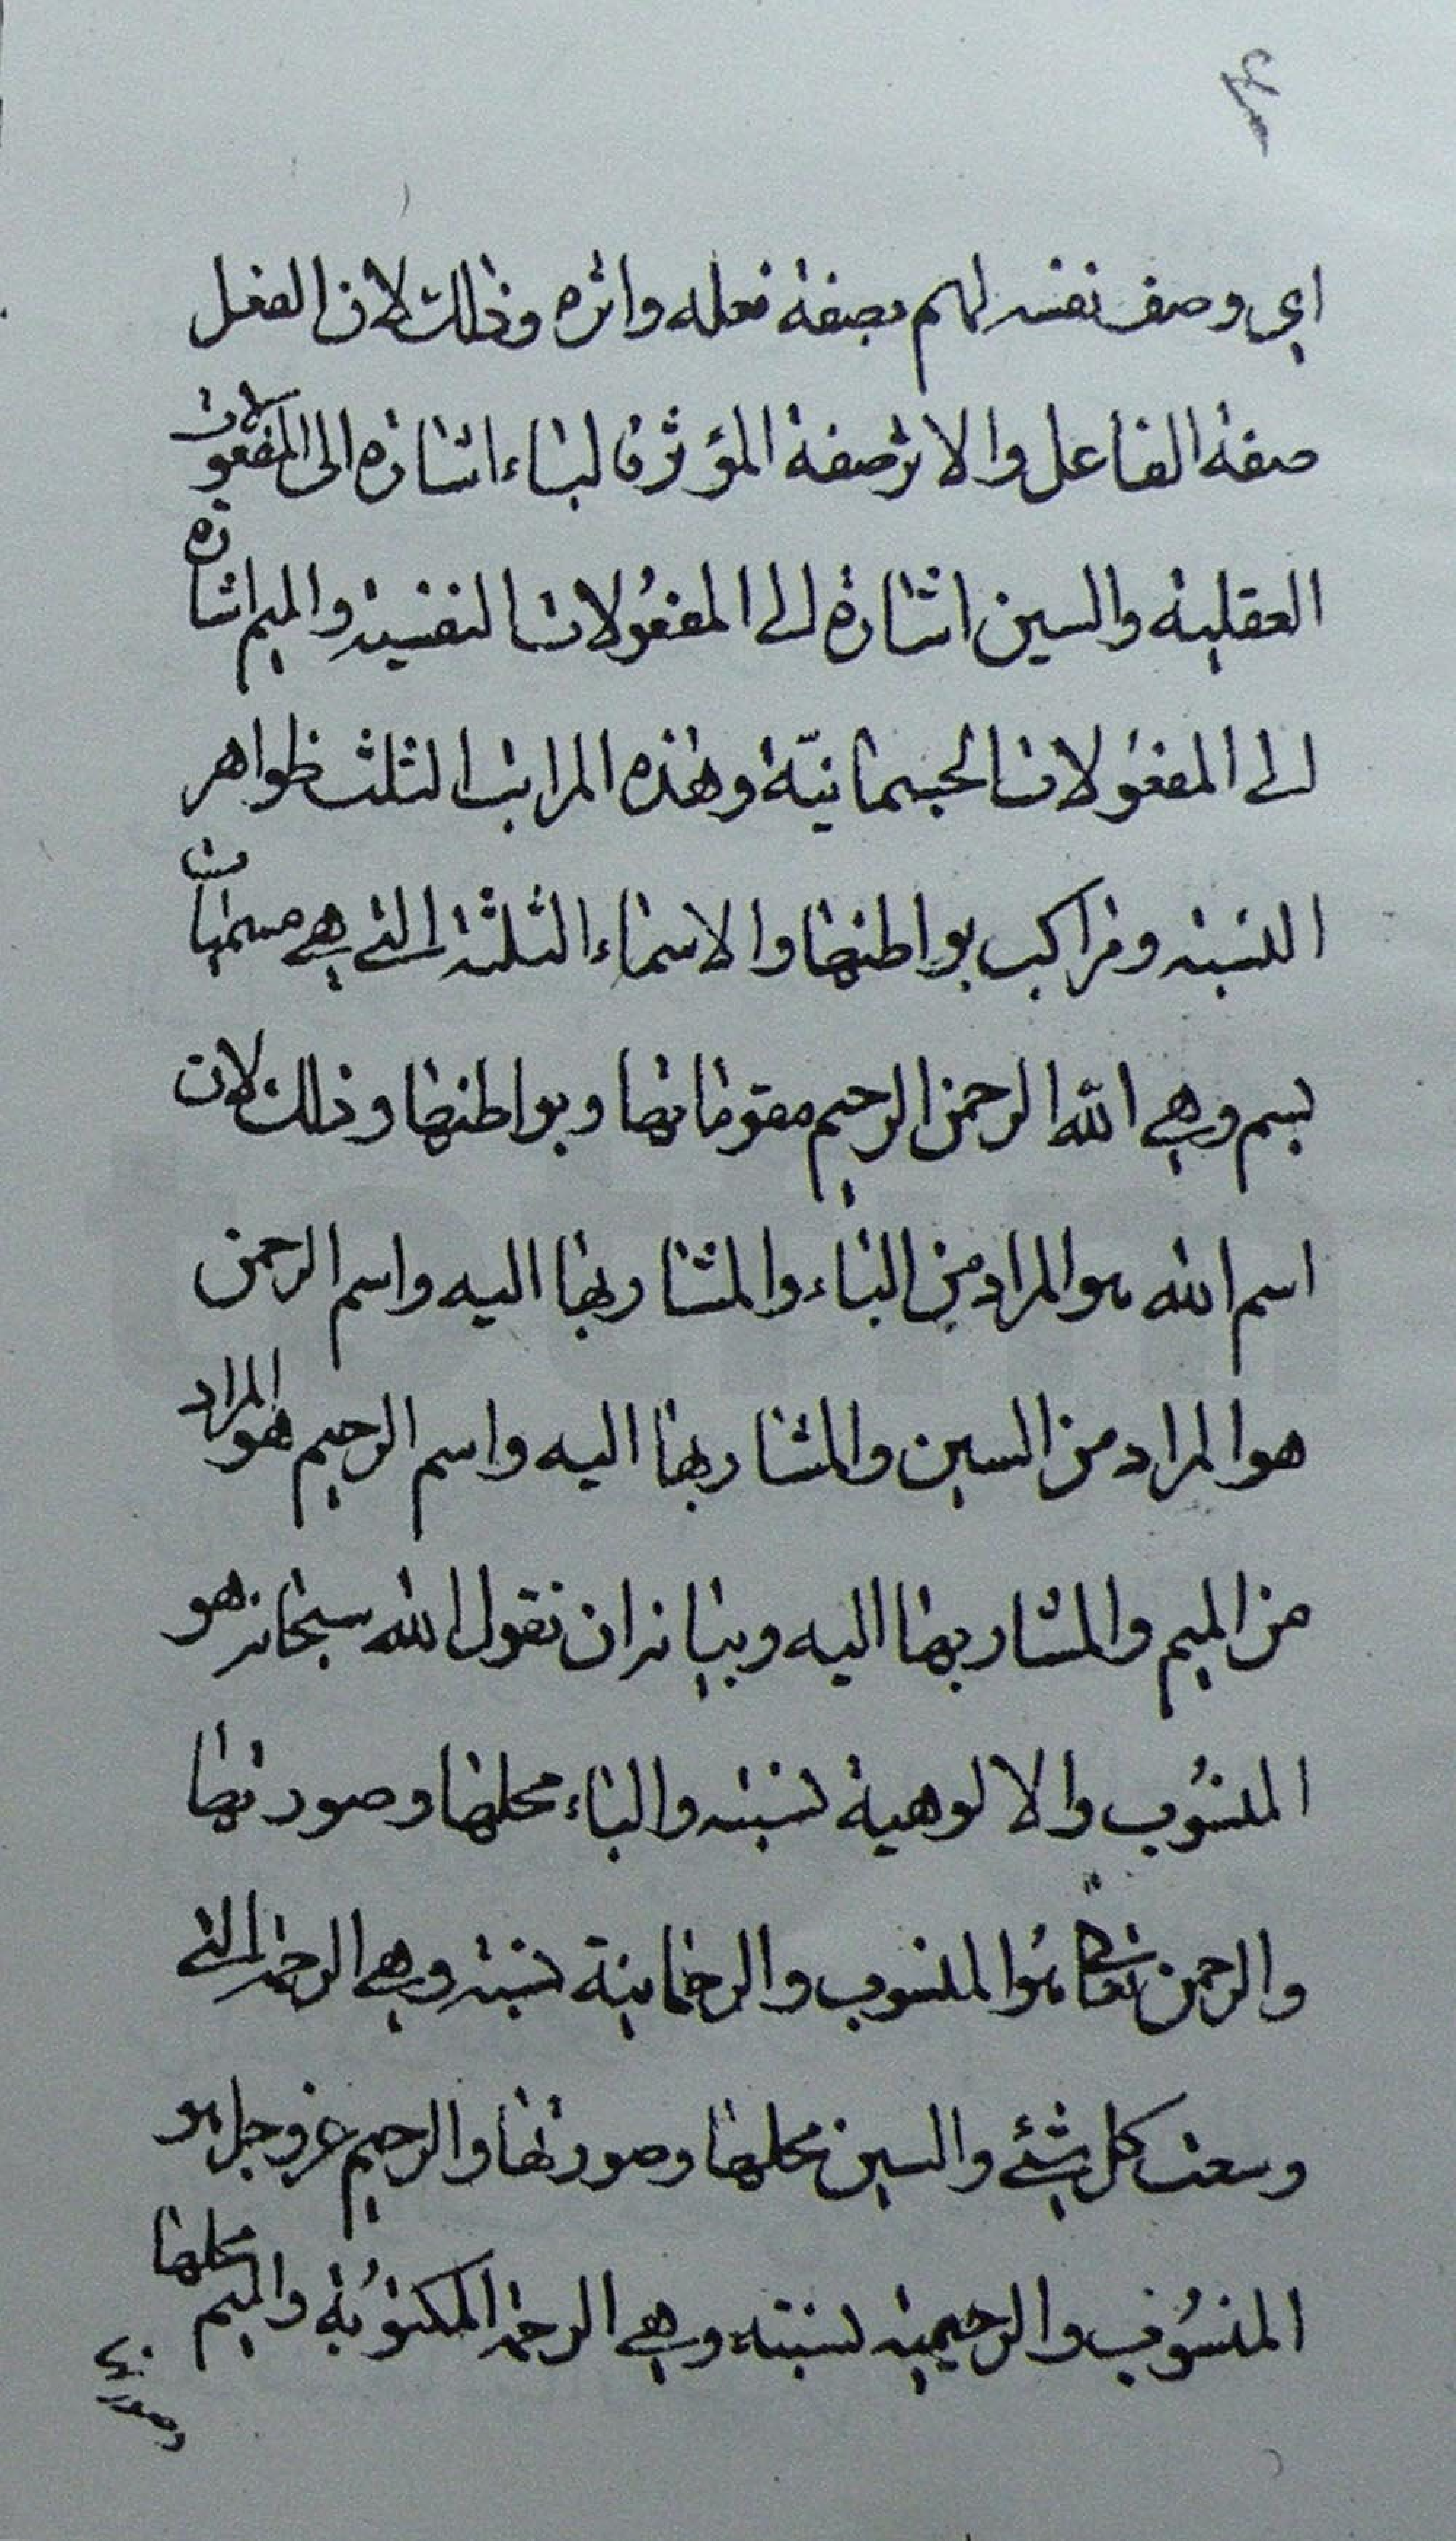 اي وصف نفسه لهم بصفة فعله واثره وذلك لان الفعل
صفة الفاعل والاثر صفة المؤثر فالباء اشارة الى المفعولات
العقلية والسين اشارة الى المفعولات النفسية والميم اشارة
الى المفعولات الجسمانيّة وهذه المراتب الثلث ظواهر
النسبة ومراكب بواطنها والاسماء الثلثة التي هي مسميات
بسم وهي الله الرحمن الرحيم مقوماتها وبواطنها وذلك لان
اسم الله هو المراد من الباء والمشار بها اليه واسم الرحمن
هو المراد من السين والمشار بها اليه واسم الرحيم هو المراد
من الميم والمشار بها اليه وبيانه ان نقول الله سبحانه هو
المنسُوب والالوهية نسبته والباء محلها وصورتها
والرحمن تعالى هُو المنسوب والرحمانية نسبته وهي الرحمة التي
وسعت كل شئ والسين محلها وصورتها والرحيم عز وجل هو
المنسُوب والرحيمية نسبته وهي الرحمة المكتوُبة والميم محلها
وصورتها